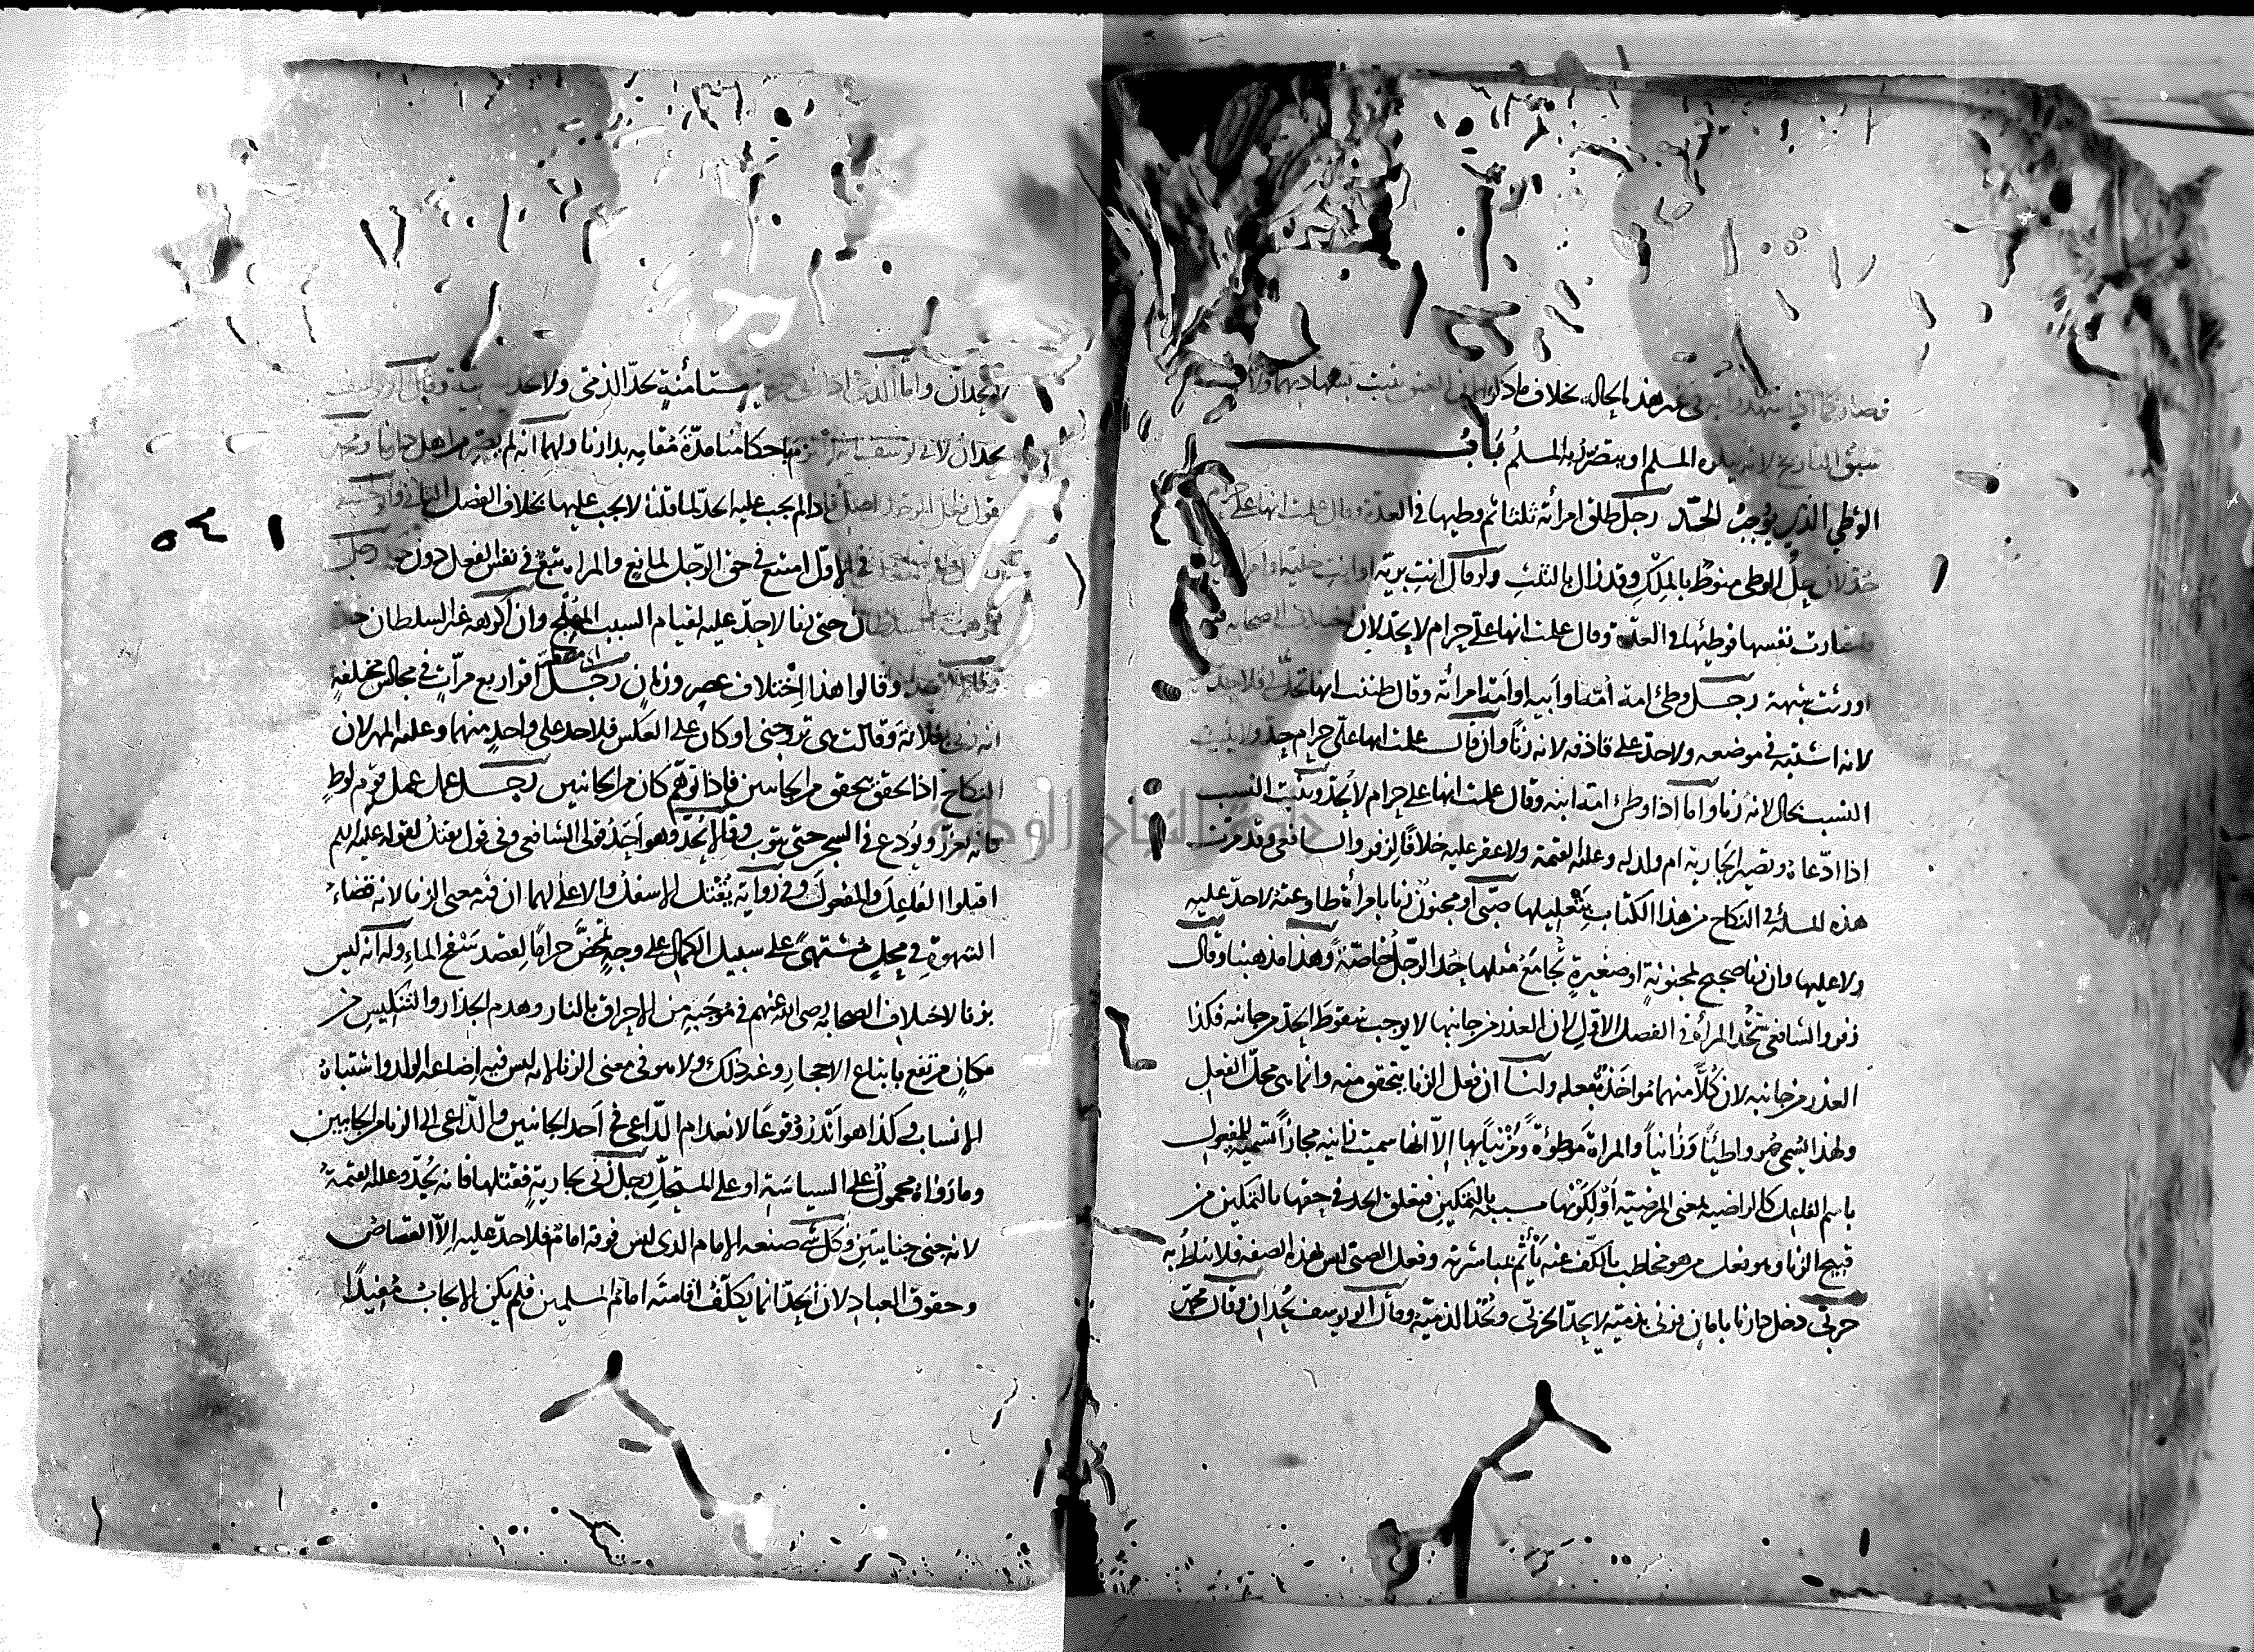 فصار كما اذا شهدوا بعد هذه الحالة بخلاف ما ذكر لان العتق يثبت بشهادتهما ولا
سبق التاريخ لانه المسلم او يتضرر به المسلم باب
الوطي الذي يوجب الحد رجل طلق امرأته ثلثا ثم وطيها في العدة وقال علمت انها علي حرام
حد لان حل الوطي منوط بالملك وقد زال بالثلث ولو قال انت برية او انت خلية او امرك
فاختارت نفسها فوطيها في العدة وقال علمت انها علي حرام لا يحد لان الصحابة فيه
اورثت شبهة رجل وطئ امة امه او ابيه او امة امرأته وقال ظننت انها تحل لي فلا حد
لانه اشتبه في موضعه ولا حد على قاذفه لانه زنا وان قال علمت انها علي حرام حد ولا يثبت
النسب بحال لانه زنا واما اذا وطئ امة ابنه وقال علمت انها علي حرام لا يحد ويثبت النسب
اذا ادعاه وتصير الجارية ام ولد له وعليه القيمة ولا عقر عليه خلافا لزفر والشافعي وقد مرت
هذه المسئلة في النكاح من هذا الكتاب بتعليلها صبي او مجنون زنا بامرأة طاوعته لا حد عليه
ولا عليها وان زنا صحيح بمجنونة او صغيرة تجامع مثلها حد الرجل خاصة وهذا مذهبنا وقال
زفر والشافعي تحد المرأة في الفصل الاول لان العذر من جانبها لا يوجب سقوط الحد من جانبه فكذا
العذر من جانبه لان كلا منهما مواخذ بفعله ولنا ان فعل الزنا يتحقق منه وانما هي محل الفعل
ولهذا يسمى هو واطئا وزانيا والمراة موطوءة ومزنيا بها الا انها سميت زانية مجازا تسمية للمفعول
باسم الفاعل كالراضية بمعنى المرضية او لكونها مسببة بالتمكين فتعلق الحد في حقها بالتمكين من
قبيح الزنا وهو فعل من هو مخاطب بالكف عنه يأثم بمباشرته وفعل الصبي ليس بهذه الصفة فلا يناط به
حربي دخل دارنا بامان فزنى بذمية لا يحد الحربي وتحد الذمية وقال ابو يوسف يحدان وقال محمد
لا يحدان واما الذمي اذا زنى مستأمنة يحد الذمي ولا حد
يحدان لابي يوسف انه التزم احكامنا مدة مقامه بدارنا ولهما انه لم يصر من اهل دارنا
اصل فاذا لم يجب عليه الحد لما قلنا لا يجب عليها بخلاف الفصل الثاني
في الاول امتنع في حق الرجل لمانع والمراة تبع في نفس الفعل دون رجل
السلطان حتى زنا لا حد عليه لقيام السبب الملجئ وان اكرهه غير السلطان حد
وقالوا هذا اختلاف عصر وزمان رجل اقر اربع مرات في مجالس مختلفة
انه زنى بفلانة وقالت هي تزوجني او كان على العكس فلا حد على واحد منهما وعليه المهر لان
النكاح اذا تحقق يتحقق من الجانبين فاذا توهم كان من الجانبين رجل عمل عمل قوم لوط
فانه يعزر ويودع في السجن حتى يتوب وقالا يحد وهو احد قولي الشافعي وفي قول يقتل لقوله عليه السلم
اقتلوا الفاعل والمفعول وفي رواية يقتل الاسفل والاعلى لهما ان فيه معنى الزنا لانه قضاء
الشهوة في محل مشتهى على سبيل الكمال على وجه تمحض حراما لقصد سفح الماء وله انه ليس
بزنا لاختلاف الصحابة رضي الله عنهم في موجبه من الاحراق بالنار وهدم الجدار والتنكيس من
مكان مرتفع باتباع الاحجار وغير ذلك ولا هو في معنى الزنا لانه ليس فيه اضاعة الولد واشتباه
الانساب وكذا هو اندر وقوعا لانعدام الداعي في احد الجانبين والداعي الى الزنا من الجانبين
وما رواه محمول على السياسة او على المستحل رجل زنى بجارية فقتلها فانه يحد وعليه القيمة
لانه جنى جنايتين وكل شئ صنعه الامام الذي ليس فوقه امام فلا حد عليه الا القصاص
وحقوق العباد لان الحد انما يكلف اقامته امام المسلمين فلم يكن الايجاب مفيدا